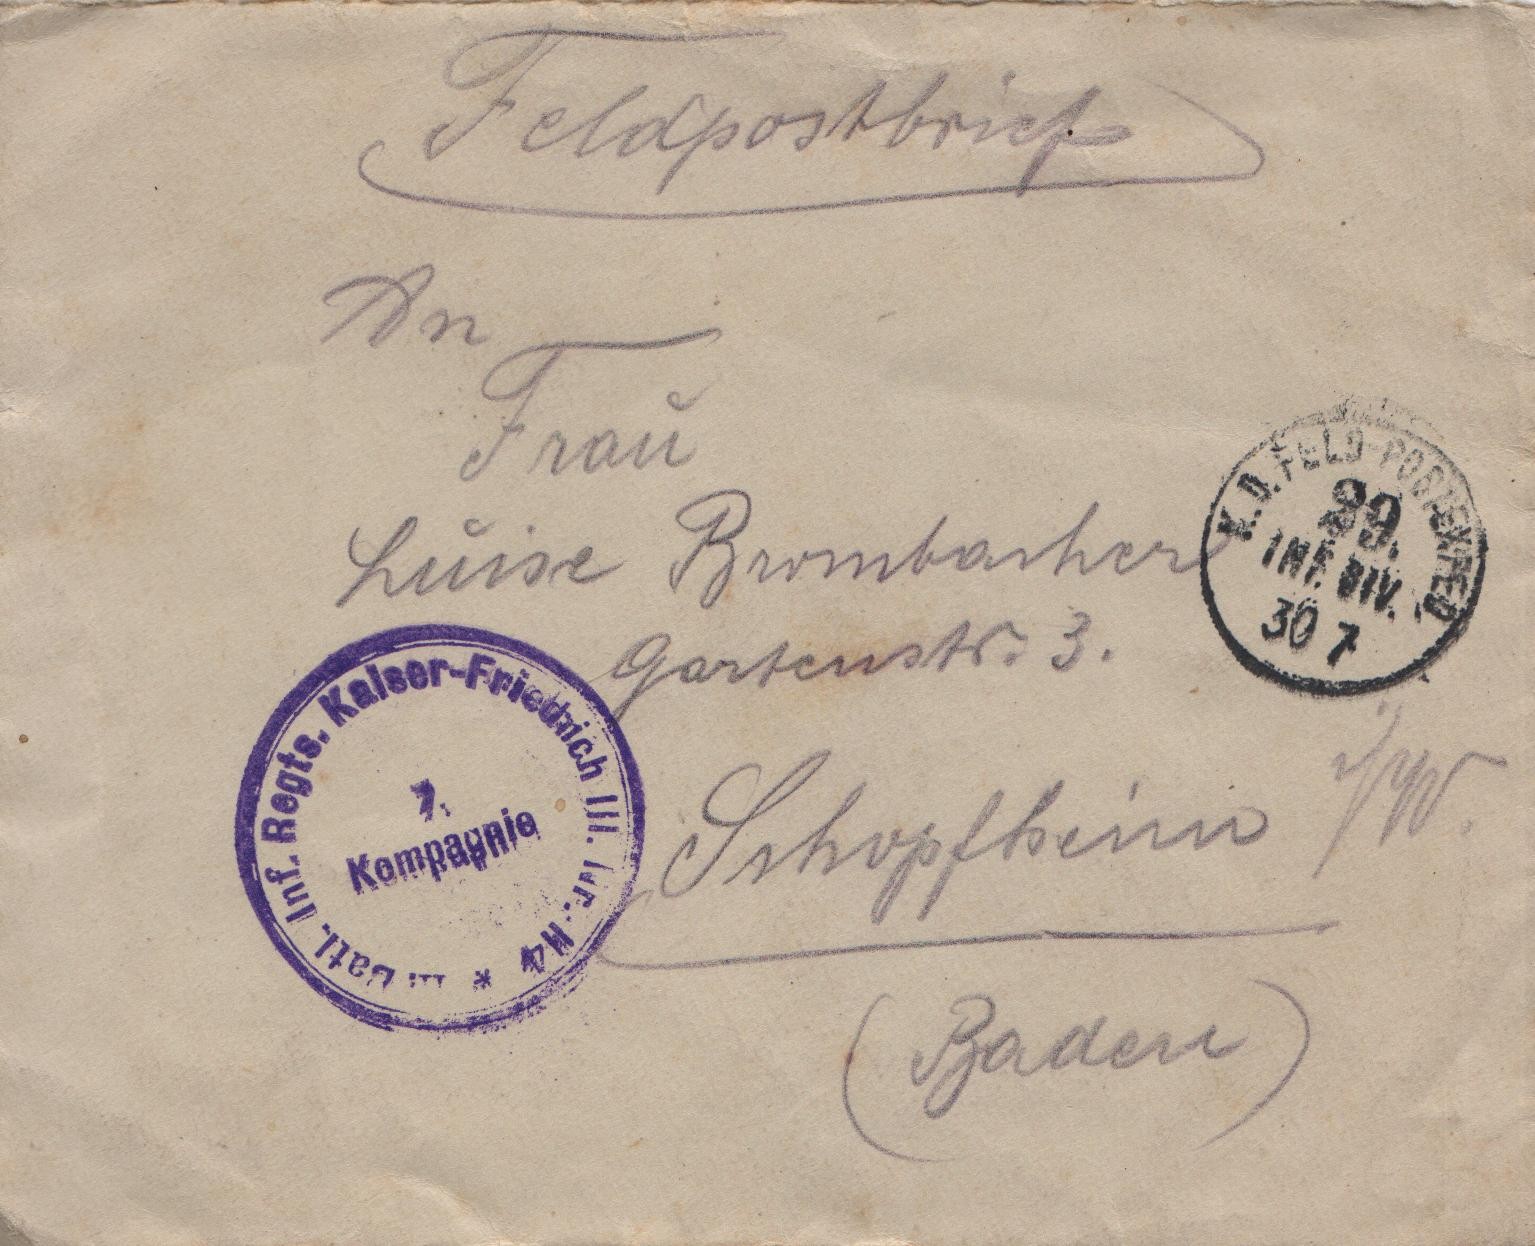 Feldpostbrief
An
Frau
Luise Brombacher
Gartenstr. 3.
Schopfheim i/W.
(Baden)
K.D. FELD-POSTEXPED
29.
INF. DIV.
30 7
II. Batl. Inf. Regts. Kaiser-Friedrich III. Nr. 114 *
7.
Kompagnie